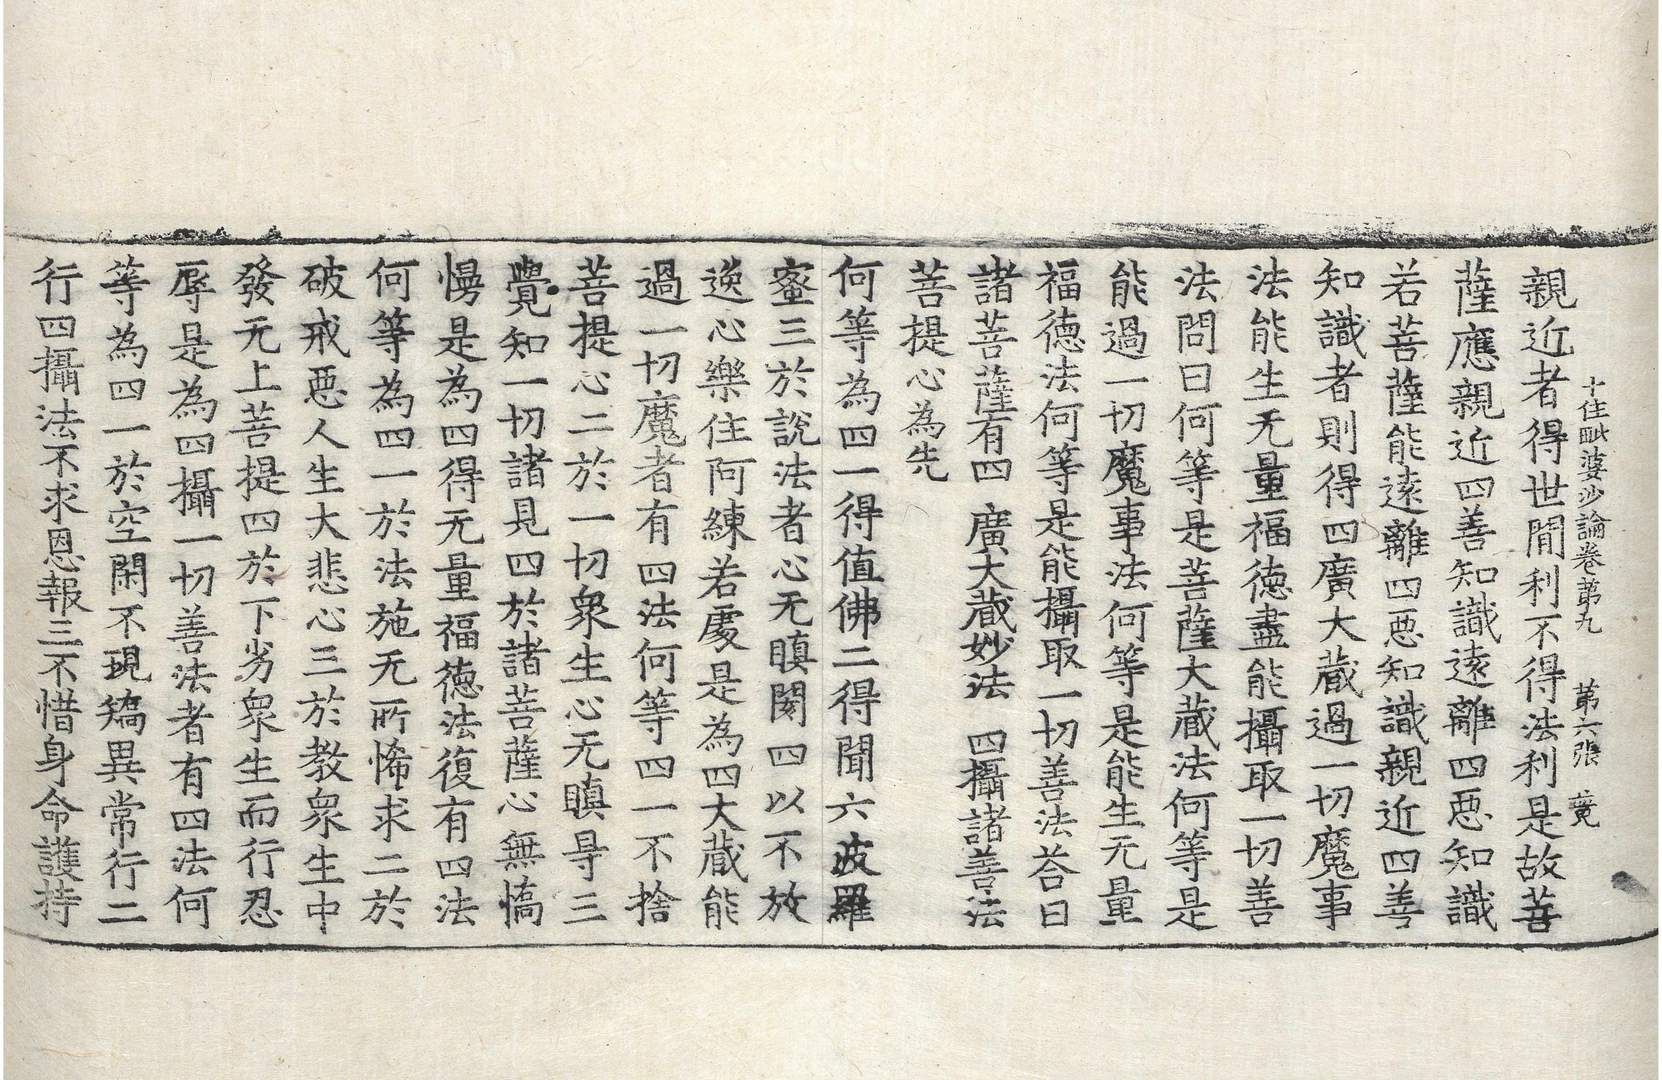 十住毗婆沙論卷第九　第六張　竟
親近者得世間利不得法利是故菩
薩應親近四善知識遠離四惡知識
若菩薩能遠離四惡知識親近四善
知識者則得四廣大蔵過一切魔事
法能生无量福德盡能攝取一切善
法問曰何等是菩薩大蔵法何等是
能過一切魔事法何等是能生无量
福德法何等是能攝取一切善法荅曰
諸菩薩有四　廣大蔵妙法　四攝諸善法
菩提心為先
何等為四一得值佛二得聞六波羅
蜜三於說法者心无瞋閡四以不放
逸心樂住阿練若處是為四大蔵能
過一切魔者有四法何等四一不捨
菩提心二於一切衆生心无瞋㝵三
覺知一切諸見四於諸菩薩心無憍
慢是為四得无量福德法復有四法
何等為四一於法施无所悕求二於
破戒惡人生大悲心三於教衆生中
發无上菩提四於下劣衆生而行忍
辱是為四攝一切善法者有四法何
等為四一於空閑不現矯異常行二
行四攝法不求恩報三不惜身命護持